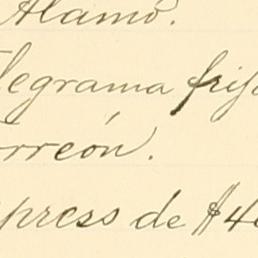 Alamo.
legrama fris
orreón.
xpress de $40